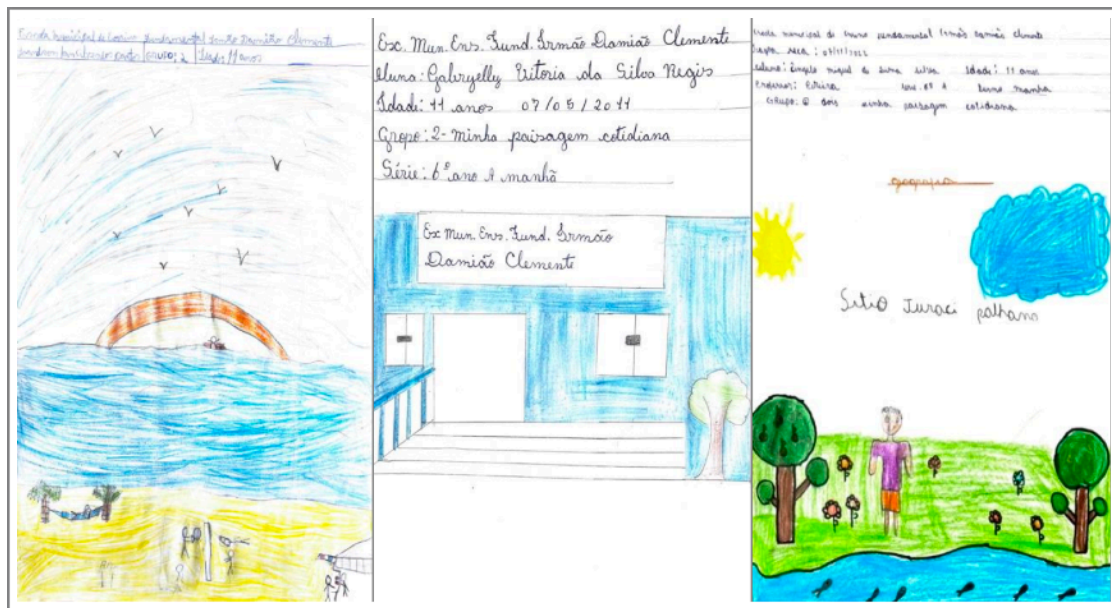 Escola municipal de Ensino fundamental Irmão Damião Clemente
GRUPO: 2 Idade 11 anos
Esc. Mun. Ens. Fund. Irmão Damião Clemente
Aluna: Gabryelly Vitoria da Silva Regis
Idade: 11 anos 07/05/2011
Grupo: 2- minha paisagem cotidiana
Série: 6º ano A manhã
Esc Mun. Ens. Fund. Irmão
Damião Clemente
Escola municipal de Ensino fundamental Irmão Damião Clemente
miguel de silva Idade: 11 anos
Professor: A turno manhã
Grupo: dois minha paisagem cotidiana
geografia
Sitio Juraci palhano